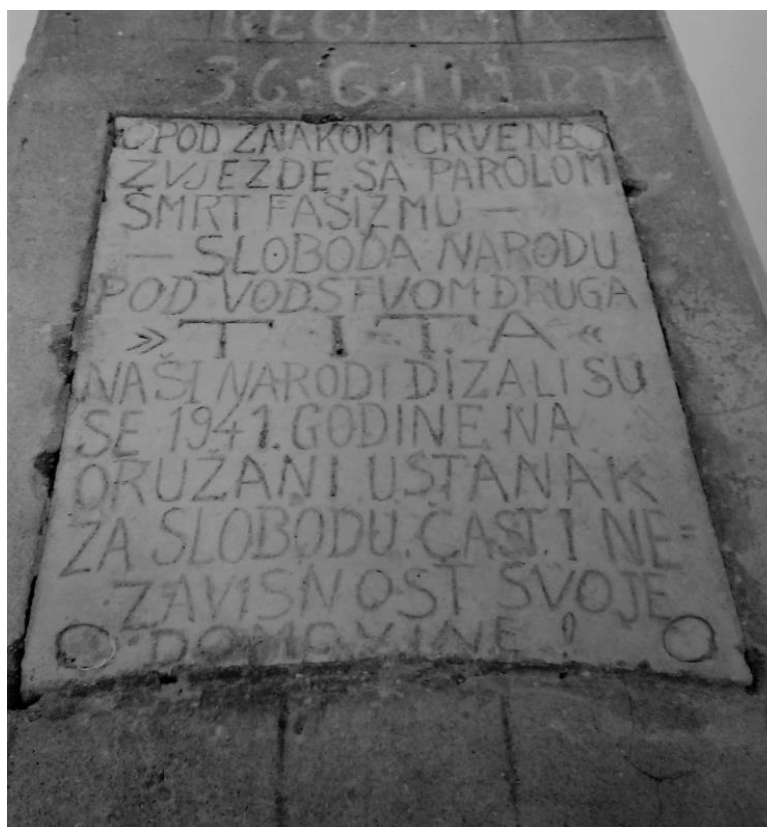 36·G·
POD ZNAKOM CRVENE
ZVJEZDE, SA PAROLOM
SMRT FAŠIZMU —
— SLOBODA NARODU
POD VODSTVOM DRUGA
» T I T A «
NAŠI NARODI DIZALI SU
SE 1941. GODINE NA
ORUŽANI USTANAK
ZA SLOBODU. ČAST. I NE=
ZAVISNOST SVOJE
DOMOVINE !